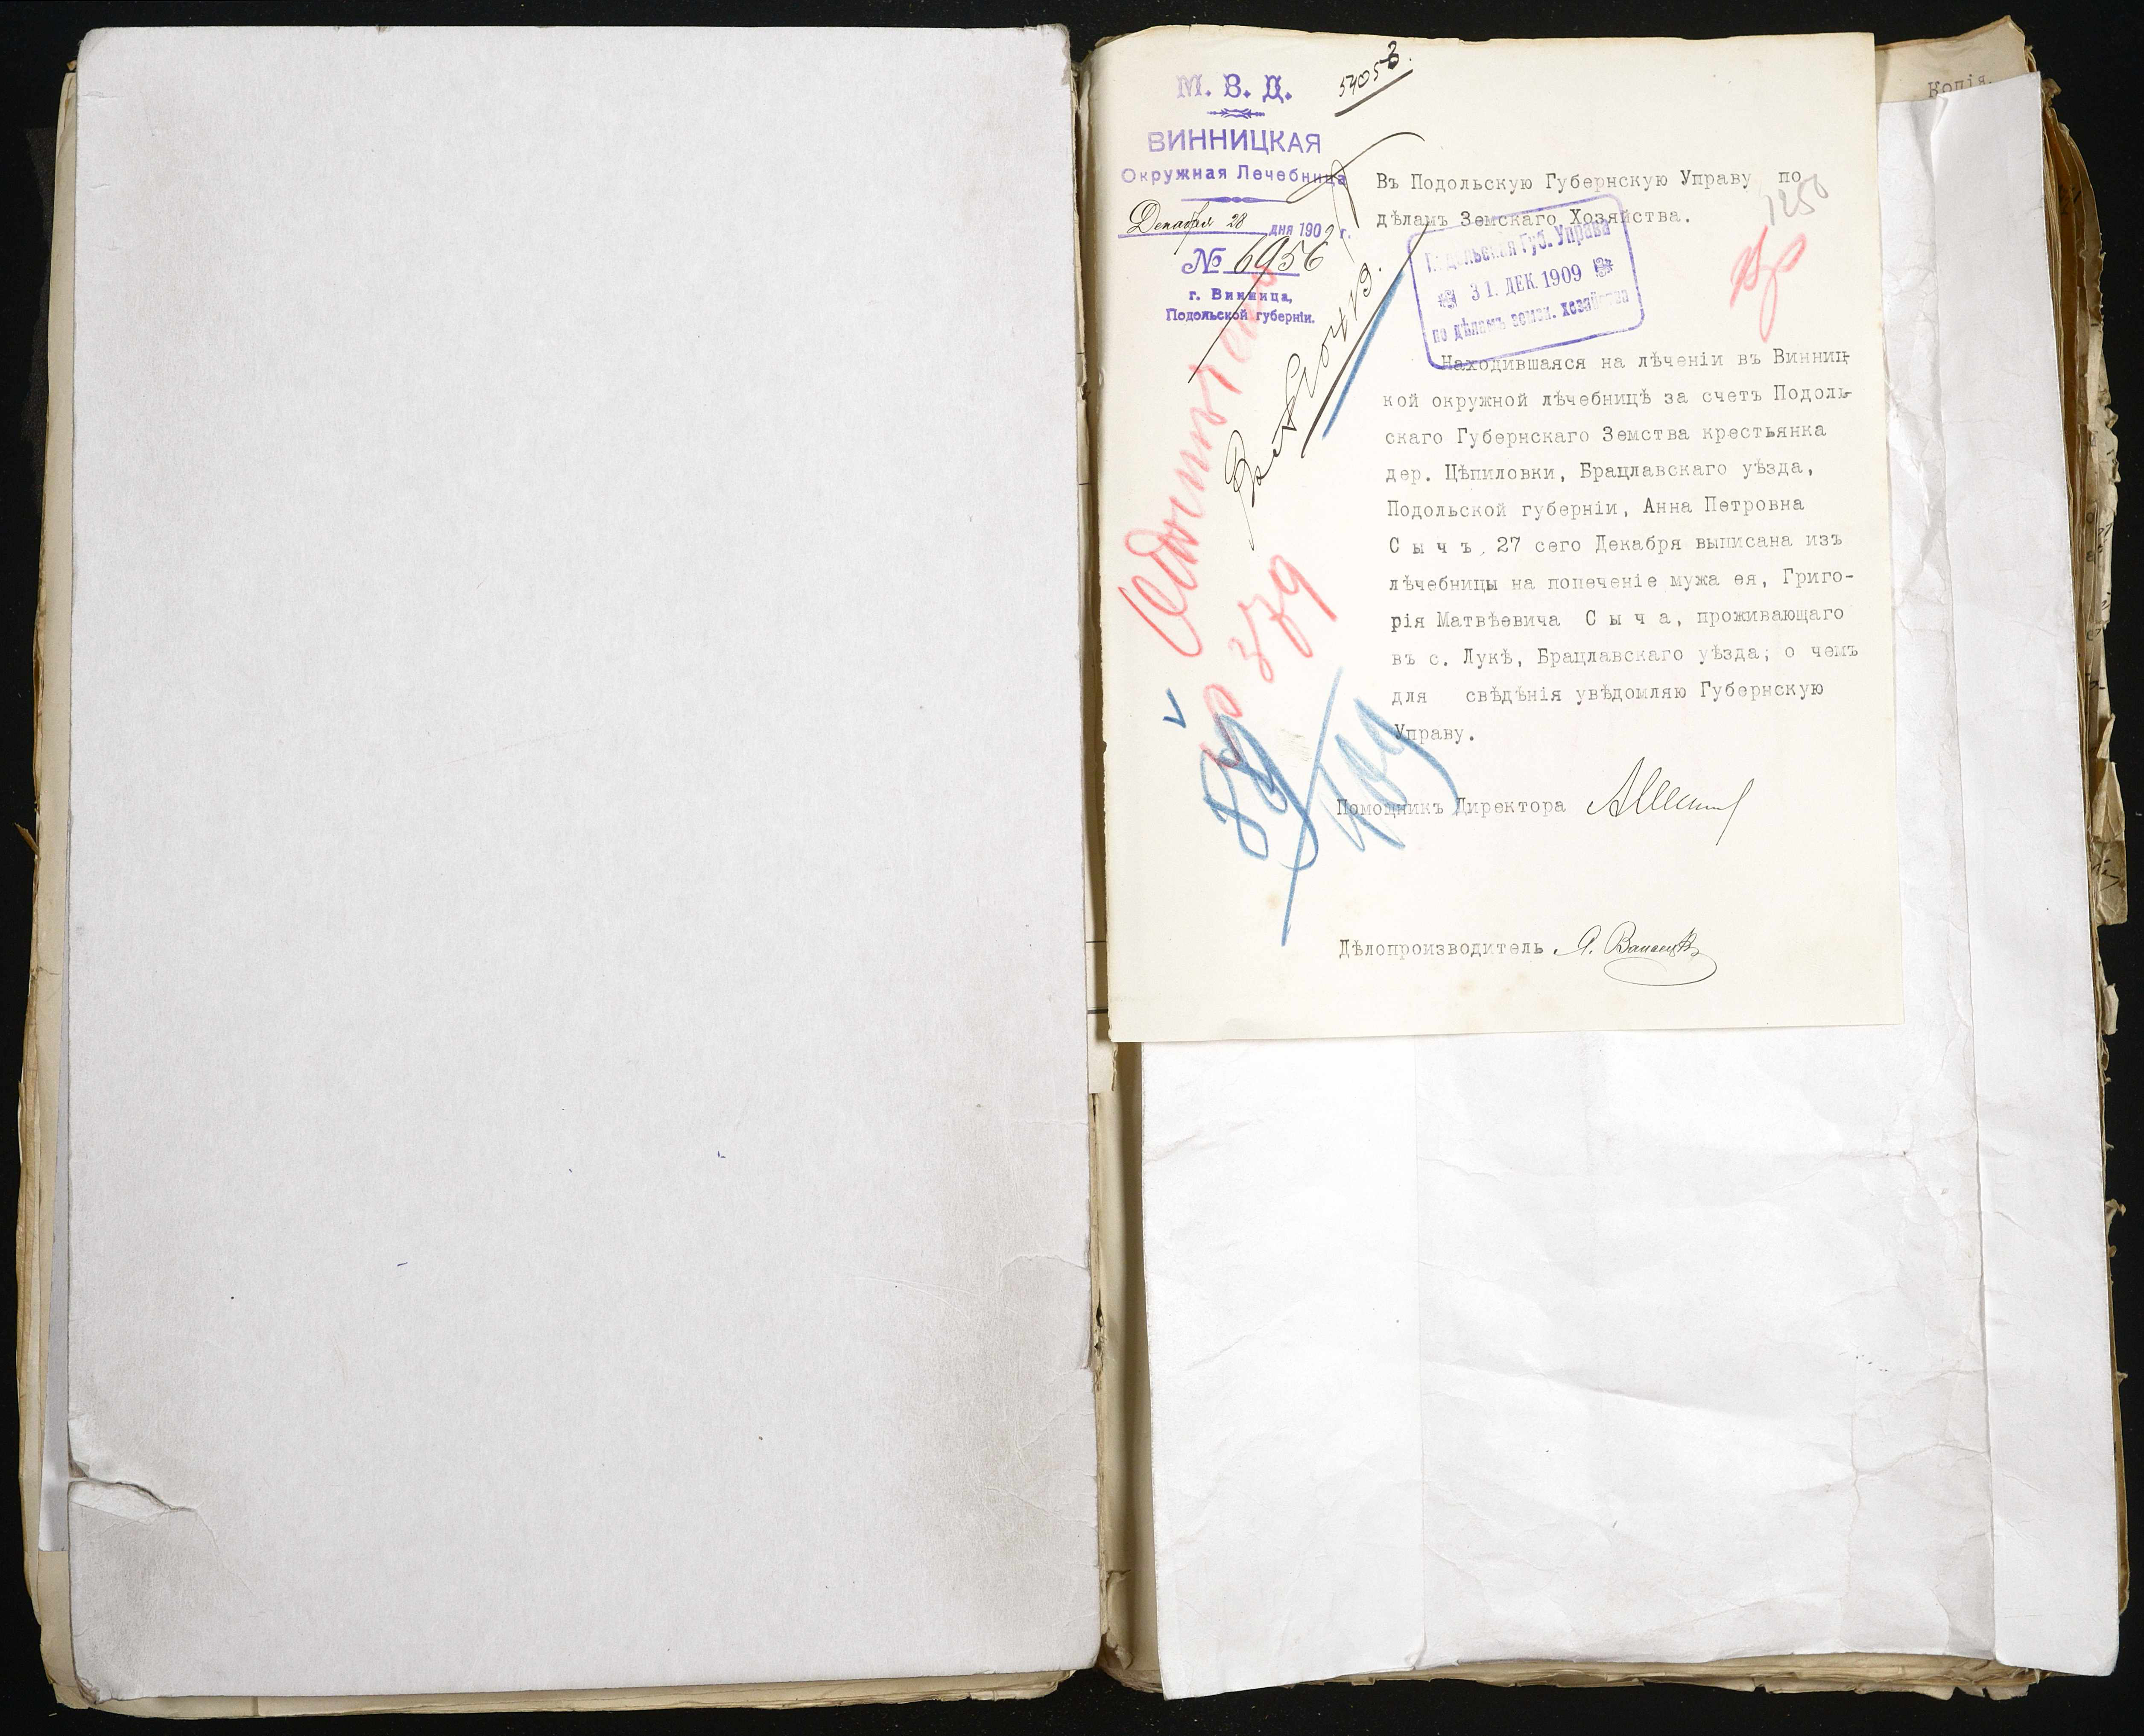 Копія.
М. В. Д.
ВИННИЦКАЯ
Окружная Лечебница
Декабря 28 дня 1909 г.
№ 6956
г. Винница,
Подольской губерніи.
54053.
Въ Подольскую Губернскую Управу по
дѣламъ Земскаго Хозяйства.
1250
Подольская Губ. Управа
31. ДЕК. 1909
по дѣламъ земск. хозяйства
Находившаяся на лѣченіи въ Винниц-
кой окружной лѣчебницѣ за счетъ Подоль-
скаго Губернскаго Земства крестьянка
дер. Цѣпиловки, Брацлавскаго уѣзда,
Подольской губерніи, Анна Петровна
С ы ч ъ, 27 сего Декабря выписана изъ
лѣчебницы на попеченіе мужа ея, Григо-
рія Матвѣевича С ы ч а, проживающаго
въ с. Лукѣ, Брацлавскаго уѣзда; о чемъ
для свѣдѣнія увѣдомляю Губернскую
Управу.
379
89/409
Помощникъ Директора
Дѣлопроизводитель